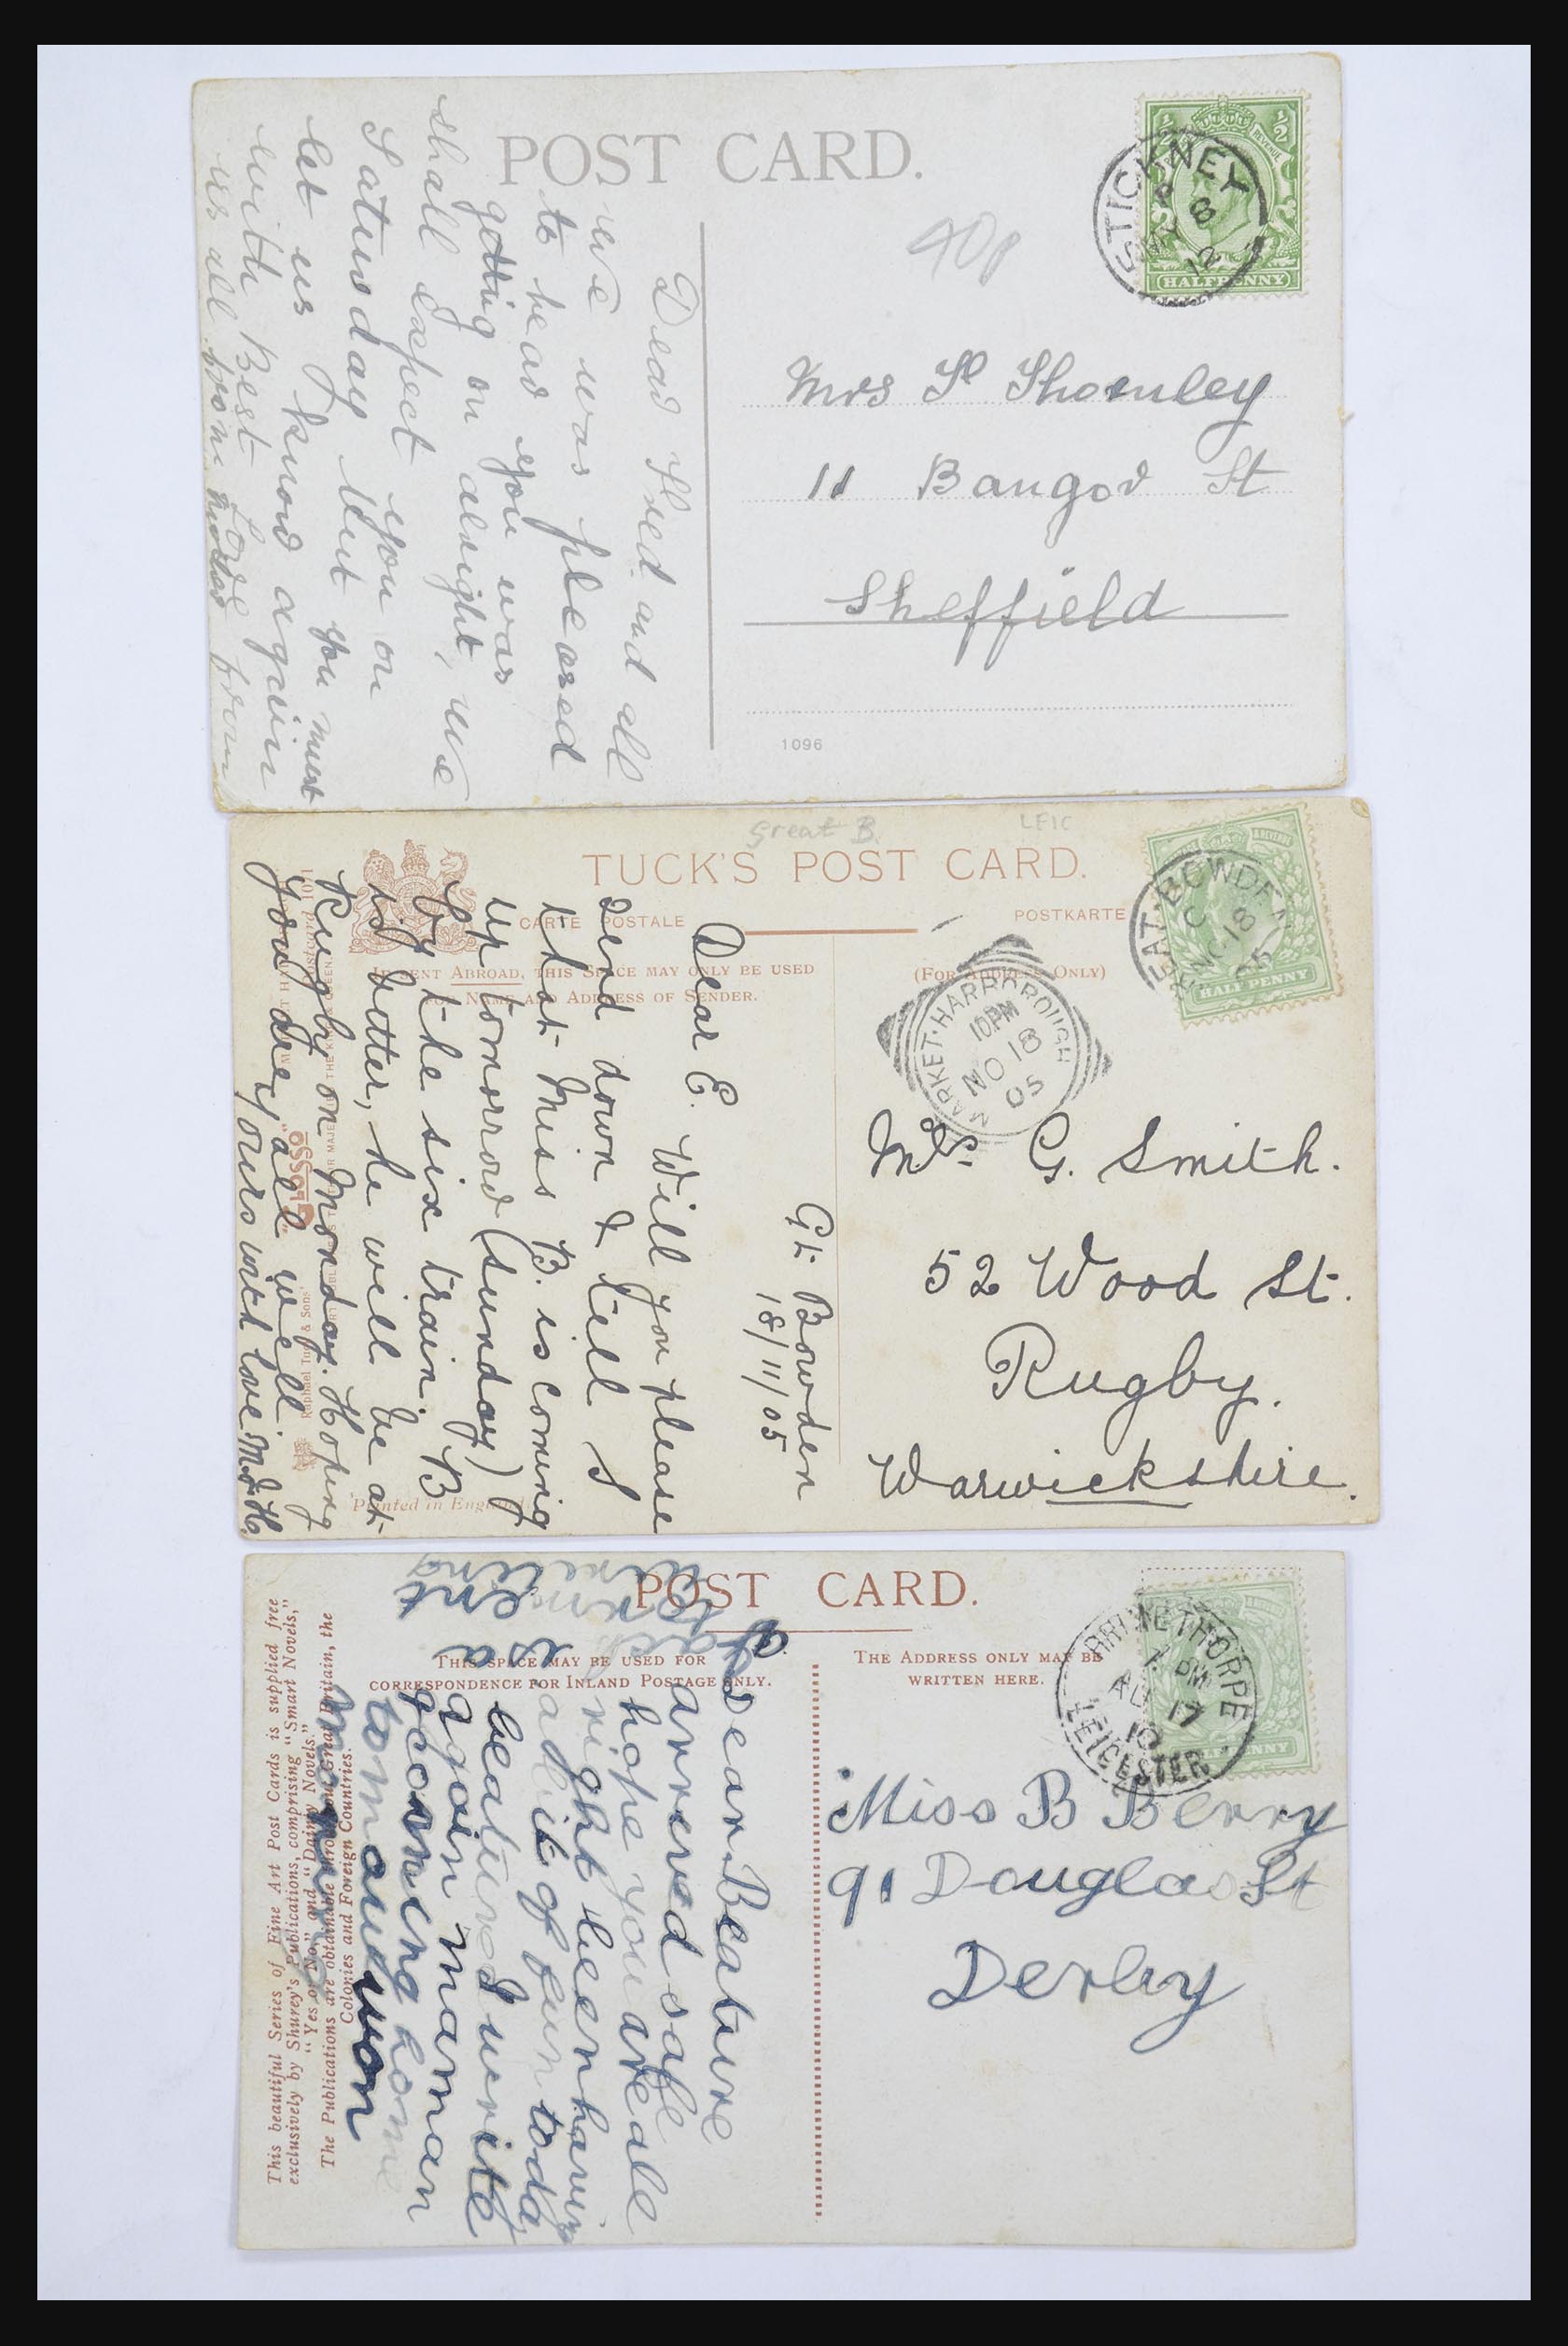 POST CARD.
1/2 1/2
REVENUE
HALFPENNY
STICKNEY
8
MY 8
12
40p
Mrs Thornley
11 Bangor St
Sheffield
1096
Dear Fred and all
we was pleased
to hear you was
getting on alright, we
shall expect you on
Saturday but you must
let us know again
with Best Love from
us all from mother
Great B.
LEIC
TUCK'S POST CARD.
CARTE POSTALE
POSTKARTE
IF SENT ABROAD, THIS SPACE MAY ONLY BE USED
FOR NAME AND ADDRESS OF SENDER.
(FOR ADDRESS ONLY)
HALF PENNY
GREAT·BOWDEN
C
NO 18
05
MARKET·HARBOROUGH
10PM
NO 18
05
Mrs. G. Smith.
52 Wood St.
Rugby.
Warwickshire.
Gt. Bowden
18/11/05
Dear E. Will you please
send down & tell S
that Miss B. is coming
up tomorrow (Sunday)
by the six train. B
is better, he will be at
Rugby on Monday. Hoping
you are all well
Yours with love M.H.
"GLOSSO"
Raphael Tuck & Sons'
Printed in England
POST CARD.
THIS SPACE MAY BE USED FOR
CORRESPONDENCE FOR INLAND POSTAGE ONLY.
THE ADDRESS ONLY MAY BE
WRITTEN HERE.
HALFPENNY
BRINETHORPE
7 PM
AU 17
10
LEICESTER
Miss B Berry
91 Douglas St
Derby
Dear Beature
arrived safe
hope you are ale
right been havin
a bit of fun today
beature I write
again maman
coming home
tomauwon
This beautiful Series of Fine Art Post Cards is supplied free
exclusively by Shurey's Publications, comprising "Smart Novels,"
"Yes or No," and "Dainty Novels."
The Publications are obtainable throughout Great Britain, the
Colonies and Foreign Countries.